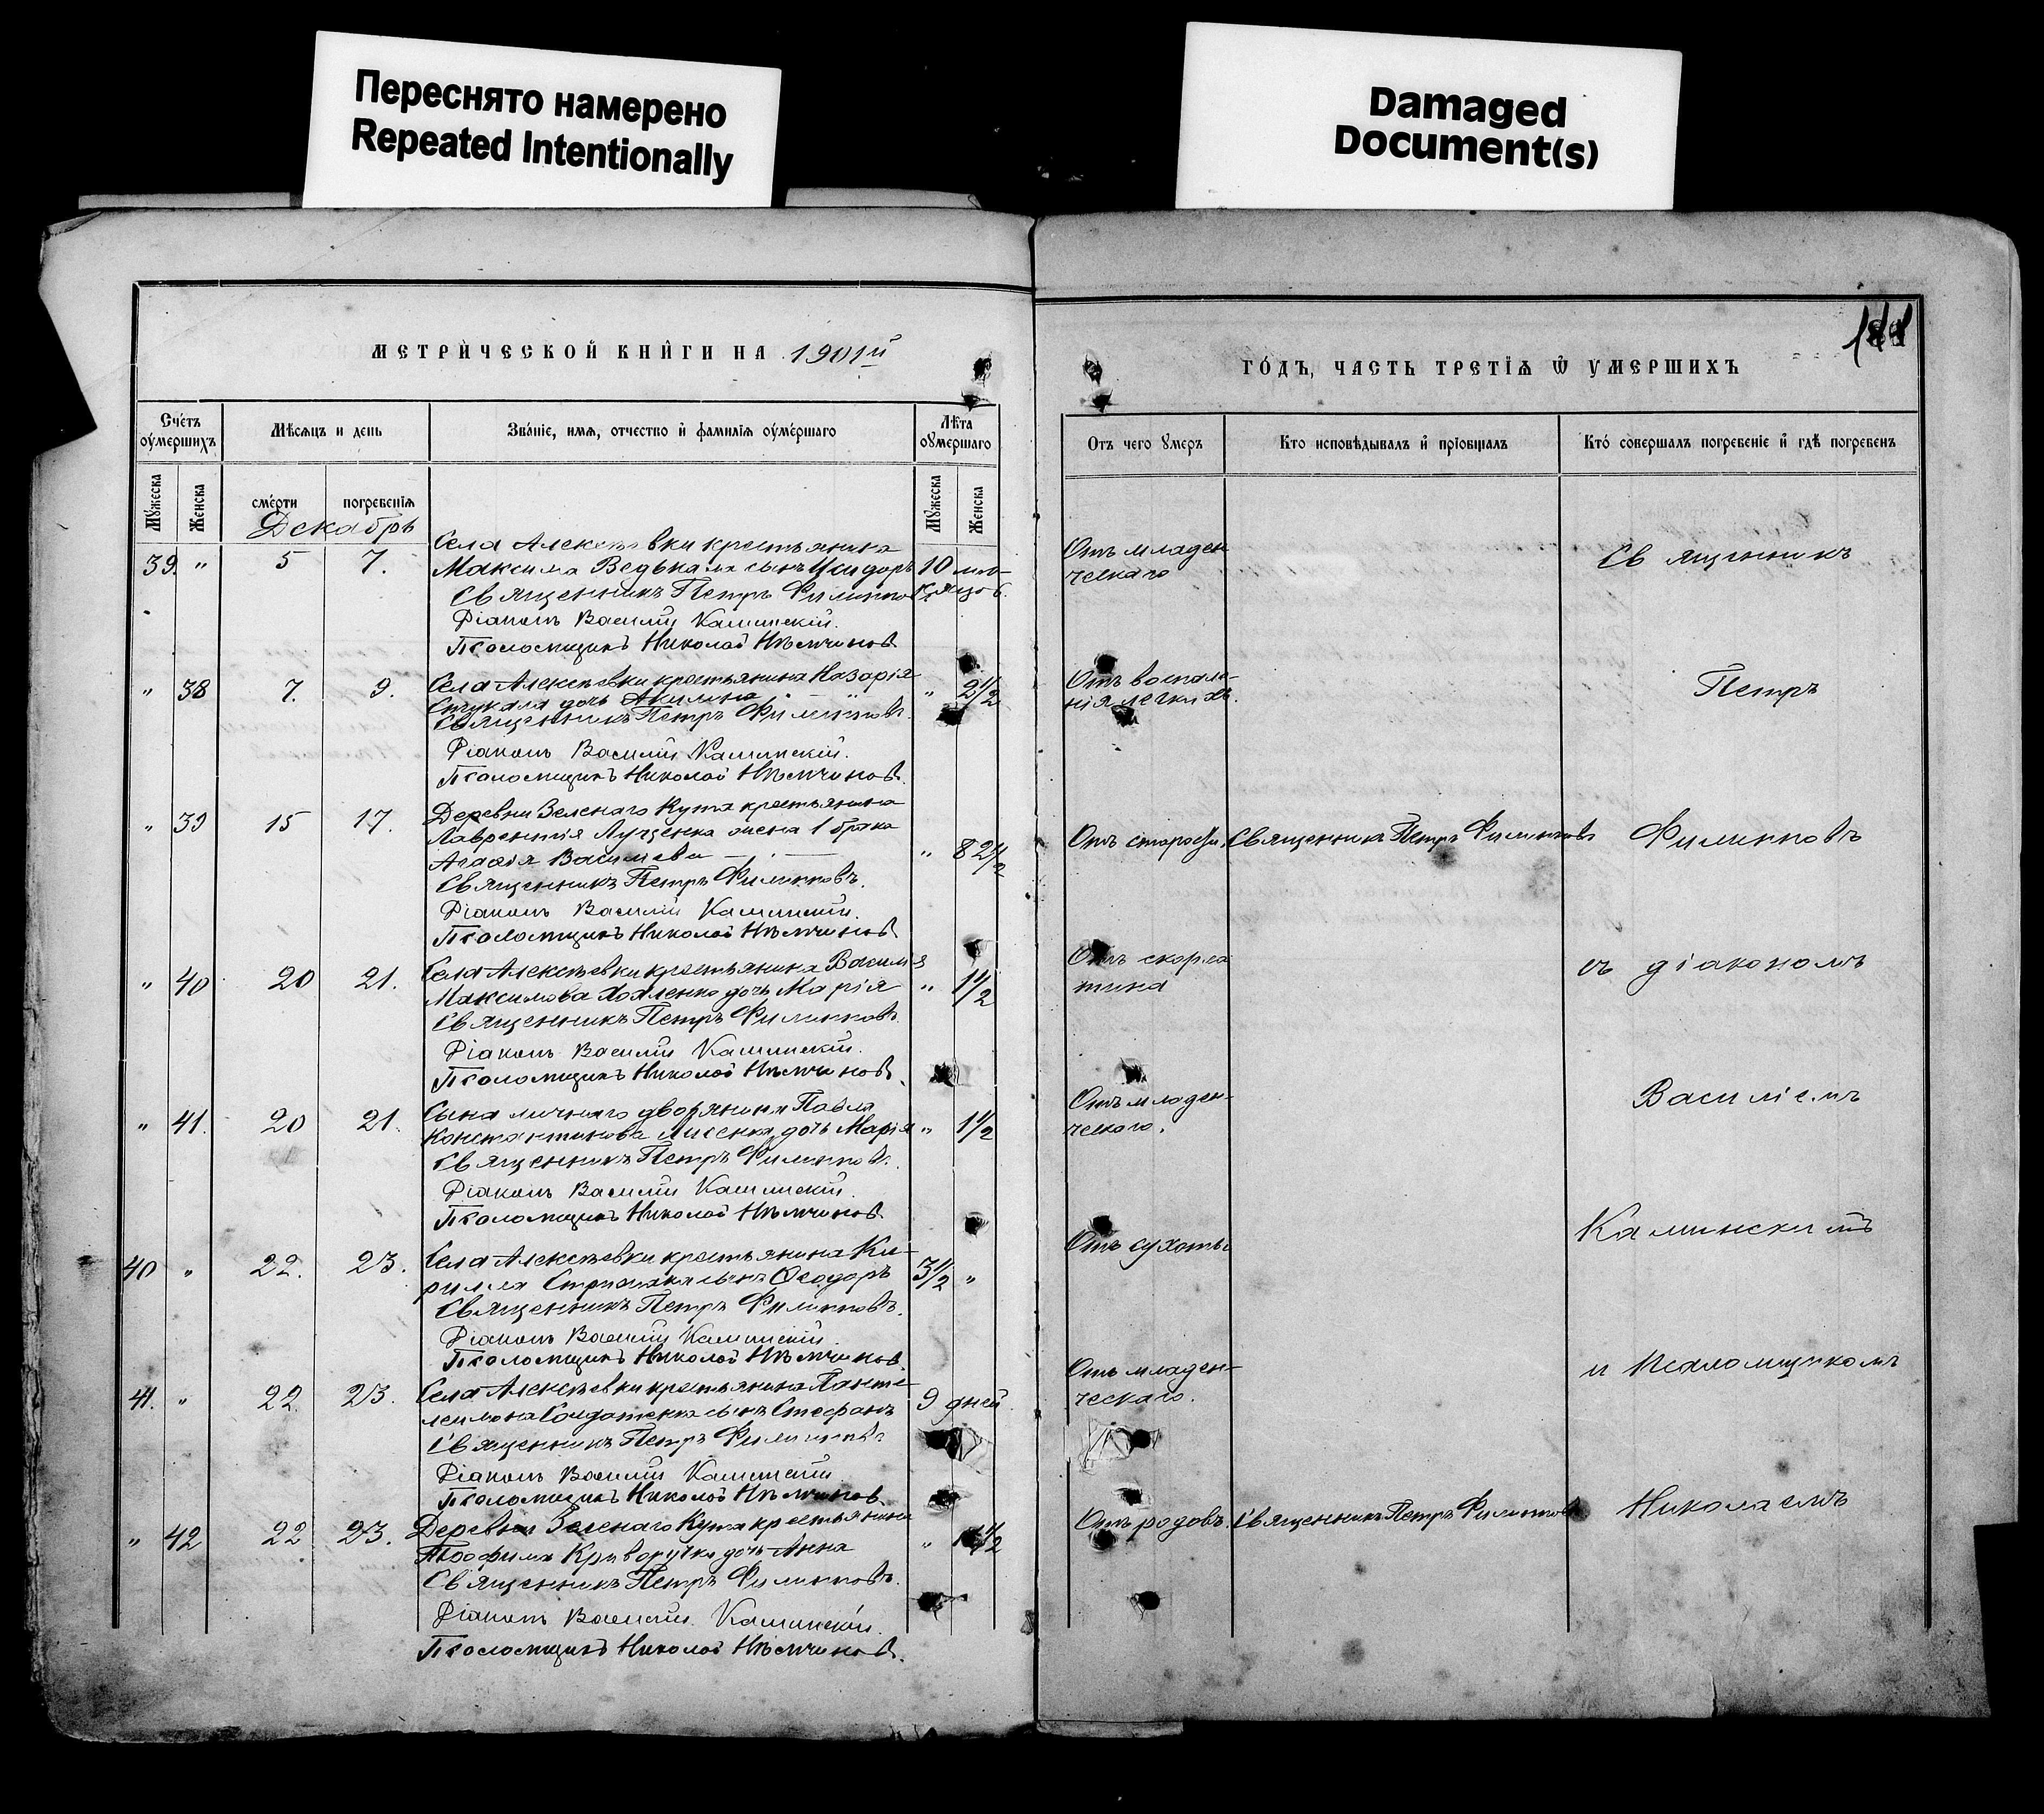 Переснято намерено
Repeated Intentionally
Damaged
Document(s)
МЕТРИЧЕСКОЙ КНИГИ НА 1901й
Счетъ оумершихъ
Мѣсяцъ и день
Званіе, имя, отчество и фамилія оумершаго
Лѣта оумершаго
Мужеска
Женска
смерти
погребенія
Мужеска
Женска
Декабрь
39. " 5 7. Села Алексѣевки крестьянина
Максима Ведькала сынъ Исидоръ 10 мѣ-
Священникъ Петръ Филипповъ сяцов.
Діаконъ Василій Каминскій.
Псаломщикъ Николай Нѣмчиновъ
" 38 7. 9. Села Алексѣевки крестьянина Назарія " 2 1/2
Стукала дочь Акилина
Священникъ Петръ Филипповъ.
Діаконъ Василій Каминскій.
Псаломщикъ Николай Нѣмчиновъ.
" 39 15 17. Деревни Зеленаго Кута крестьянина
Лаврентія Луценка жена 1 брака
Агафія Васильева " 82 1/2
Священникъ Петръ Филипповъ.
Діаконъ Василій Каминскій.
Псаломщикъ Николай Нѣмчиновъ
" 40 20 21. Села Алексѣевки крестьянина Василія
Максимова дочь Марія " 1 1/2
Священникъ Петръ Филипповъ.
Діаконъ Василій Каминскій.
Псаломщикъ Николай Нѣмчиновъ.
" 41. 20 21. Сына личнаго дворянина Павла
Константинова дочь Марія " 1 1/2
Священникъ Петръ Филипповъ.
Діаконъ Василій Каминскій.
Псаломщикъ Николай Нѣмчиновъ
40 " 22. 23. Села Алексѣевки крестьянина Ки-
рилла Стрижака сынъ Ѳеодоръ 3 1/2 "
Священникъ Петръ Филипповъ.
Діаконъ Василій Каминскій.
Псаломщикъ Николай Нѣмчиновъ.
41. " 22. 23. Села Алексѣевки крестьянина Панте-
леимона Солдатенка сынъ Стефанъ 9 дней.
Священникъ Петръ Филипповъ
Діаконъ Василій Каминскій
Псаломщикъ Николай Нѣмчиновъ.
" 42 22 23. Деревни Зеленаго Кута крестьянина
Ѳеофила Криворучки дочь Анна "
Священникъ Петръ Филипповъ.
Діаконъ Василій Каминскій.
Псаломщикъ Николай Нѣмчиновъ.
ГОДЪ, ЧАСТЬ ТРЕТІЯ Ѿ УМЕРШИХЪ
Отъ чего умеръ
Кто исповѣдывалъ и пріобщалъ
Кто совершалъ погребеніе и гдѣ погребенъ
Отъ младен
ческаго
Священникъ
Отъ воспале-
нія легкихъ.
Петръ
Отъ старости. Священникъ Петръ Филипповъ Филипповъ
Отъ скарла
тина
съ діакономъ
Отъ младен-
ческаго.
Василіемъ
Отъ сухоты
Каминскимъ
Отъ младен-
ческаго.
и псаломщикомъ
Отъ родовъ. Священникъ Петръ Филипповъ Николаемъ